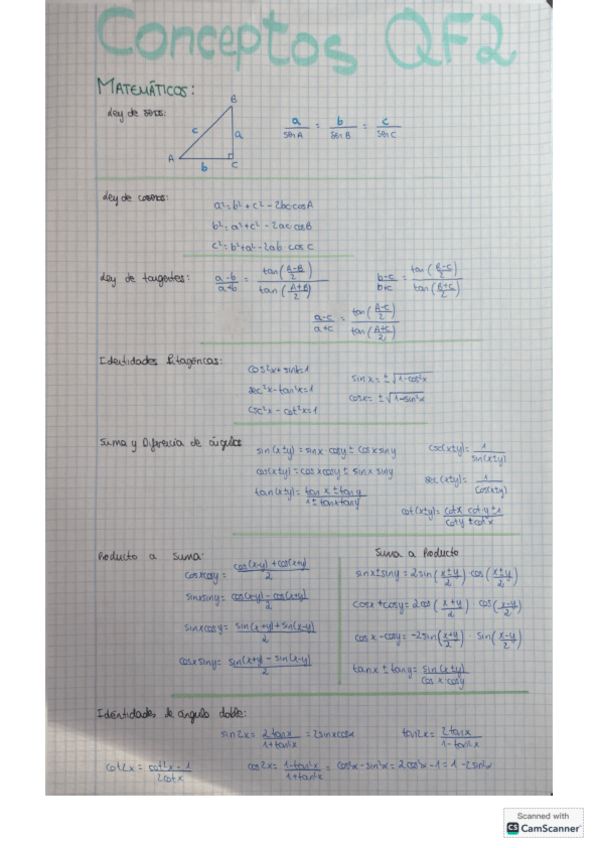 Conceptos QF2
MATEMÁTICOS:
Ley de senos:
B
c
a
A
b
C
a/sen A = b/sen B = c/sen C
Ley de cosenos:
a² = b² + c² - 2bc cosA
b² = a² + c² - 2ac cosB
c² = b² + a² - 2ab cos C
Ley de tangentes:
a-b/a+b = tan(A-B/2)/tan(A+B/2)
b-c/b+c = tan(B-C/2)/tan(B+C/2)
a-c/a+c = tan(A-C/2)/tan(A+C/2)
Identidades Pitagóricas:
cos²x + sin²x = 1
sec²x - tan²x = 1
csc²x - cot²x = 1
sin x = ±√1-cos²x
cos x = ±√1-sin²x
Suma y Diferencia de ángulos
sin(x±y) = sinx·cosy ± cosx siny
cos(x±y) = cosx cosy ± sinx siny
tan(x±y) = tan x ± tan y/1 ± tanx tany
csc(x±y) = 1/sin(x±y)
sec(x±y) = 1/cos(x±y)
cot(x±y) = cotx coty ± 1/coty ± cotx
Producto a Suma:
cosx cosy = cos(x-y) + cos(x+y)/2
sinx siny = cos(x-y) - cos(x+y)/2
sinx cosy = sin(x+y) + sin(x-y)/2
cosx siny = sin(x+y) - sin(x-y)/2
Suma a Producto
sinx ± siny = 2sin(x±y/2) cos(x±y/2)
cosx + cosy = 2cos(x+y/2)·cos(x-y/2)
cosx - cosy = -2sin(x+y/2)·sin(x-y/2)
tanx ± tany = sin(x±y)/cos x·cosy
Identidades de ángulo doble:
sin2x = 2tanx/1+tan²x = 2sinxcosx
tan2x = 2tanx/1-tan²x
cot2x = cot²x-1/2cotx
cos2x = 1-tan²x/1+tan²x = cos²x - sin²x = 2cos²x - 1 = 1 - 2sin²x
Scanned with
CS CamScanner